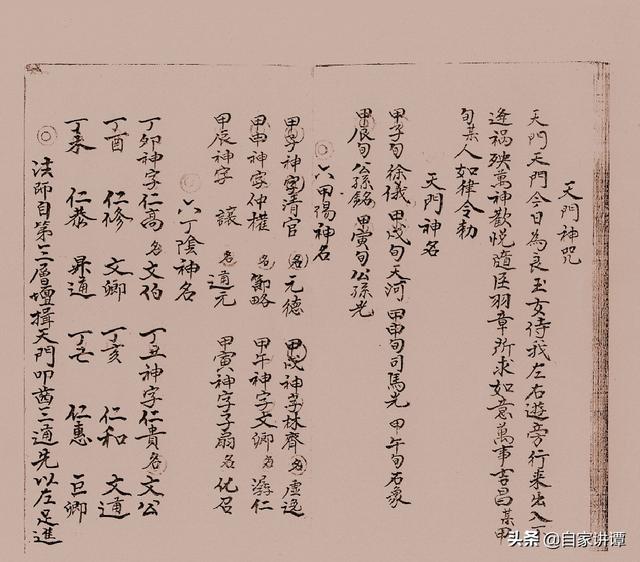 天門神咒
天門天門今日為良玉女侍我左右遊旁行来出入不
逢禍殃萬神歡悅遣臣羽章所求如意萬事吉昌某甲
旬某人如律令勅
天門神名
甲子旬徐儀 甲戌旬天河 甲申旬司馬光 甲午旬石象
甲辰旬公孫銘 甲寅旬公孫光
六甲陽神名
甲子神字清官 名元德 甲戌神字林齊 名虛逸
甲申神字仲權 名節略 甲午神字文卿 名潺仁
甲辰神字 讓 名通元 甲寅神字子扇 名化召
六丁陰神名
丁卯神字仁高 名文伯 丁丑神字仁貴 名文公
丁酉 仁修 文卿 丁亥 仁和 文通
丁未 仁恭 昇通 丁巳 仁惠 巨卿
法師自第三層壇揖天門叩齒三通先以左足進
头条 @自家讲谭